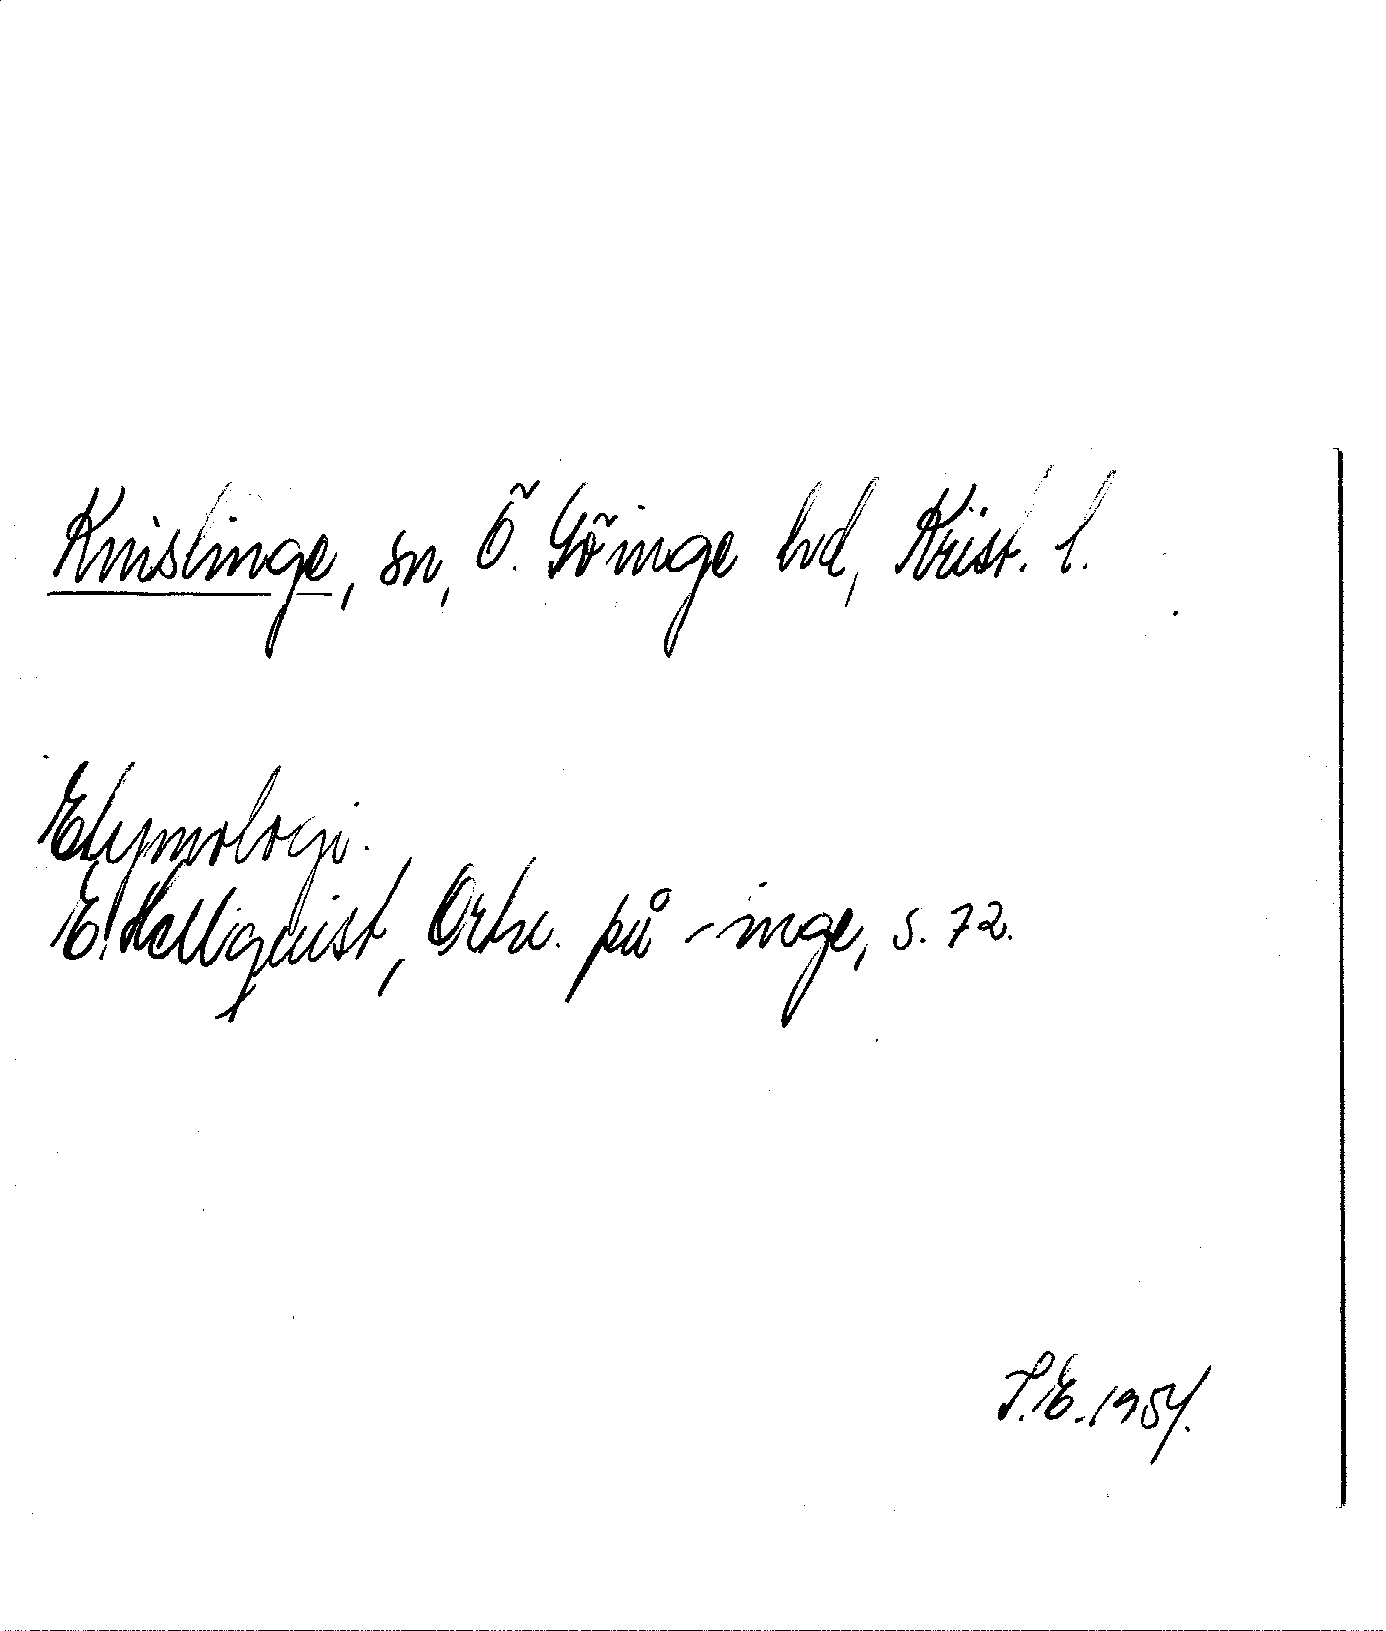 Knislinge, sn, Ö. Göinge hd, Krist. l.
Etymologi.
E. Hellquist, Ortn. på -inge, s. 72.
S.E. 1954.